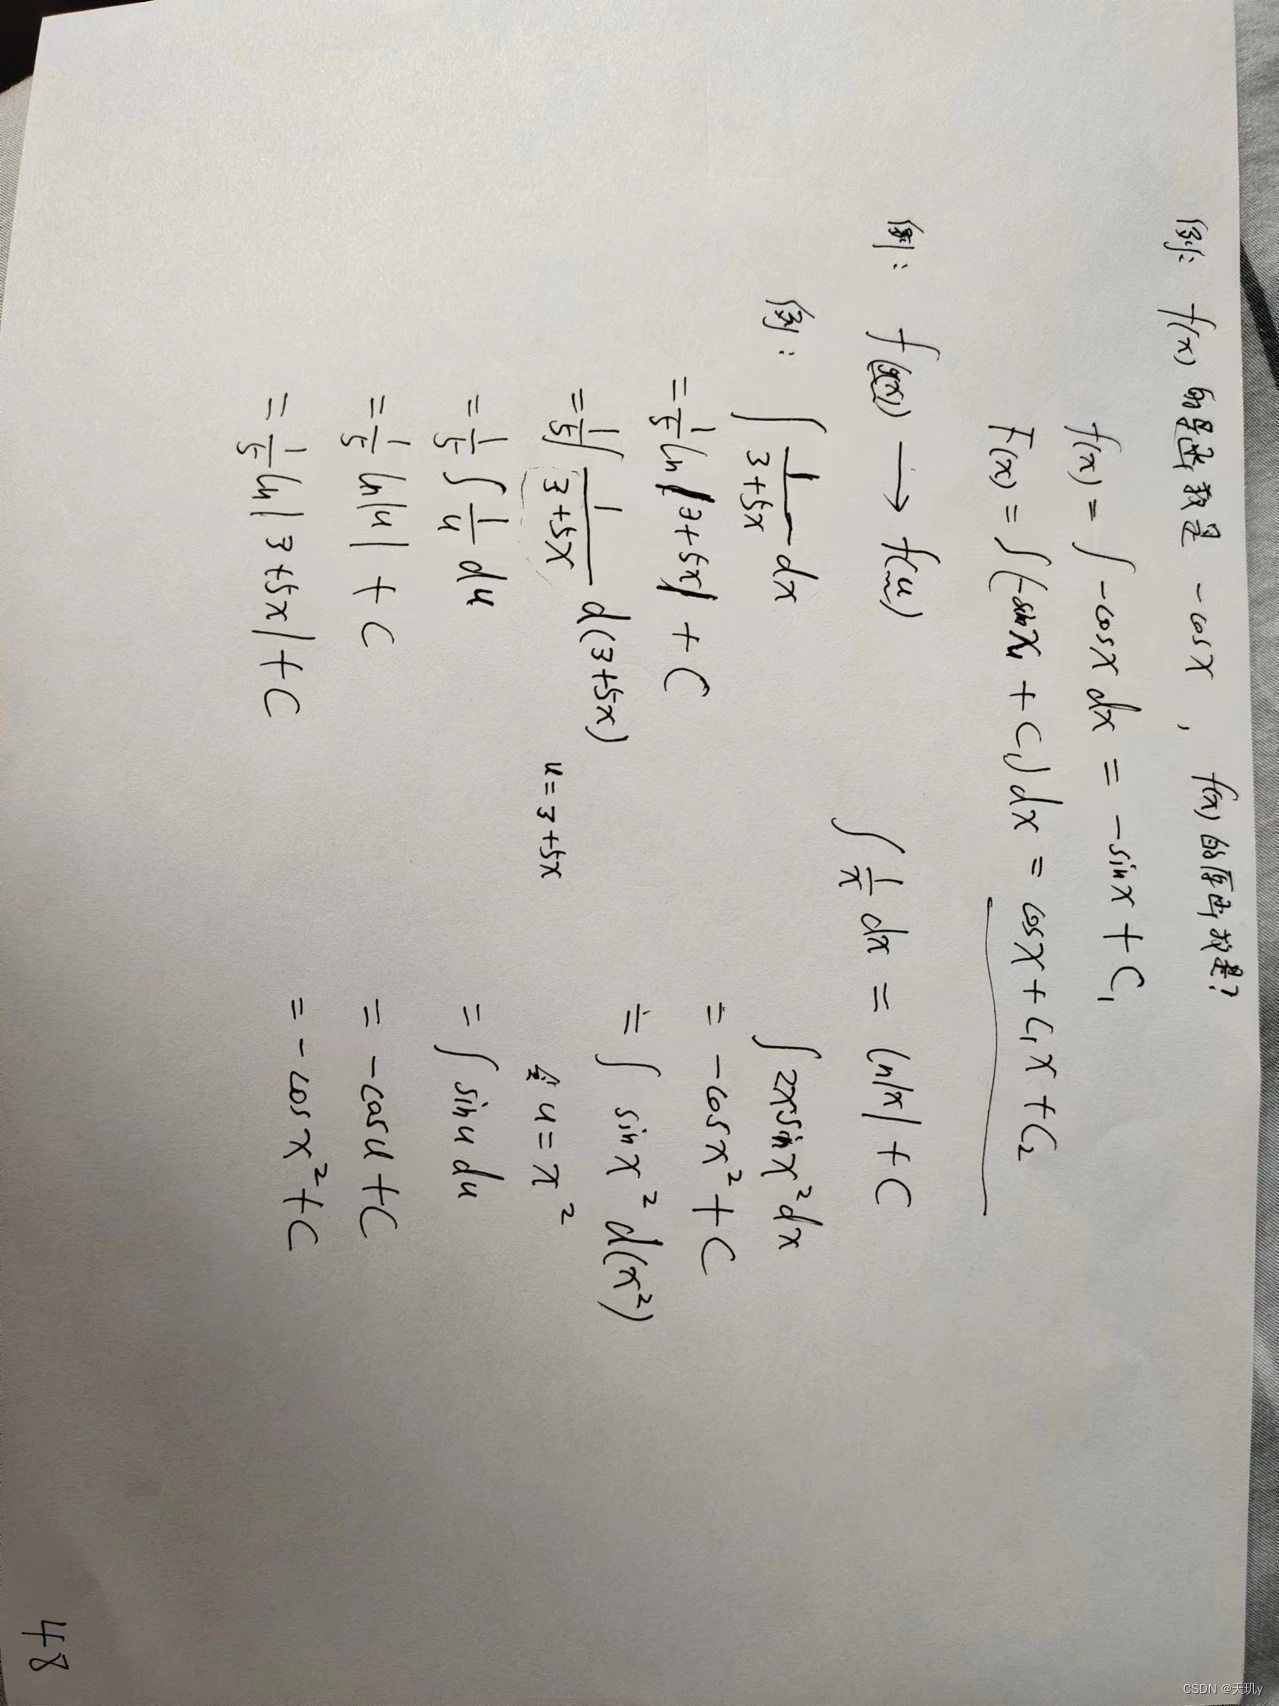 例: f(x) 的导函数是 -cosx , f(x) 的原函数是?
f(x) = ∫ -cosx dx = -sinx + C₁
F(x) = ∫(-sinx + C₁) dx = cosx + C₁x + C₂
例: f(g(x)) → f(u)
∫ 1/x dx = ln|x| + C
例: ∫ 1/(3+5x) dx
= 1/5 ln|3+5x| + C
= 1/5 ∫ 1/(3+5x) d(3+5x)
u = 3+5x
= 1/5 ∫ 1/u du
= 1/5 ln|u| + C
= 1/5 ln|3+5x| + C
∫ 2x sinx² dx
= -cosx² + C
= ∫ sinx² d(x²)
令 u = x²
= ∫ sinu du
= -cosu + C
= -cosx² + C
48
CSDN @天玑y